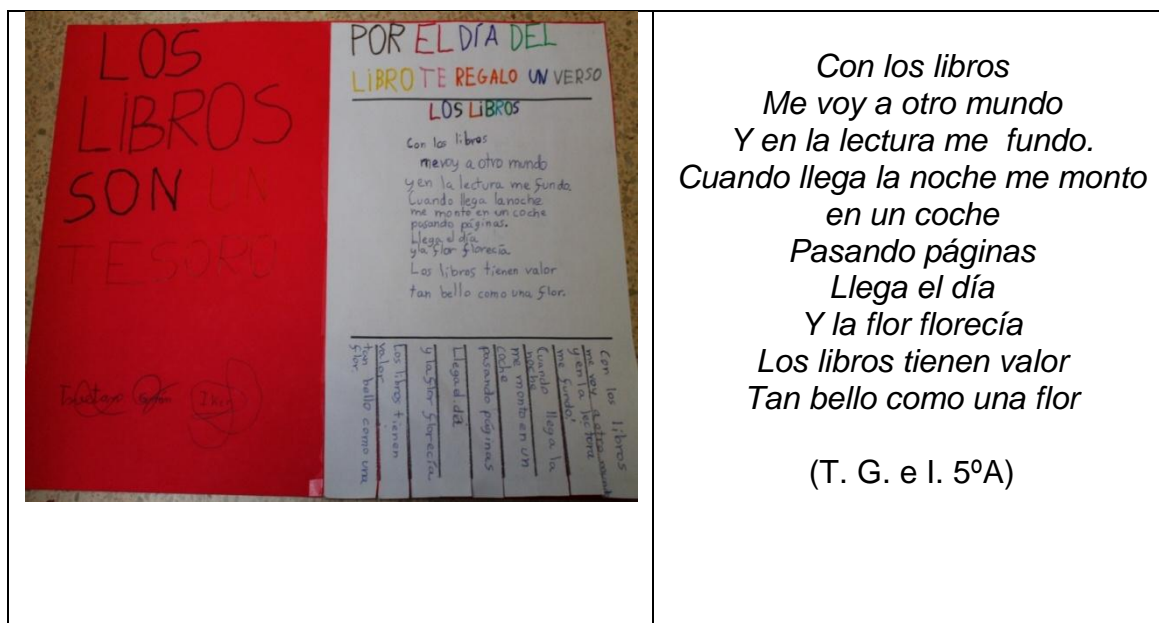 LOS
LiBROS
SON UN
TESORO
POR EL DÍA DEL
LiBRO TE REGALO UN VERSO
LOS LiBROS
Con los libros
me voy a otro mundo
y en la lectura me fundo.
Cuando llega la noche
me monto en un coche
pasando páginas.
Llega el día
y la flor florecía
Los libros tienen valor
tan bello como una flor.
Con los libros
me voy a otro mundo
y en la lectura
me fundo.
Cuando llega la
noche
me monto en un
coche
pasando páginas
Llega el día
y la flor florecía
Los libros tienen
valor
tan bello como una
flor.
Con los libros
Me voy a otro mundo
Y en la lectura me fundo.
Cuando llega la noche me monto
en un coche
Pasando páginas
Llega el día
Y la flor florecía
Los libros tienen valor
Tan bello como una flor
(T. G. e I. 5ºA)